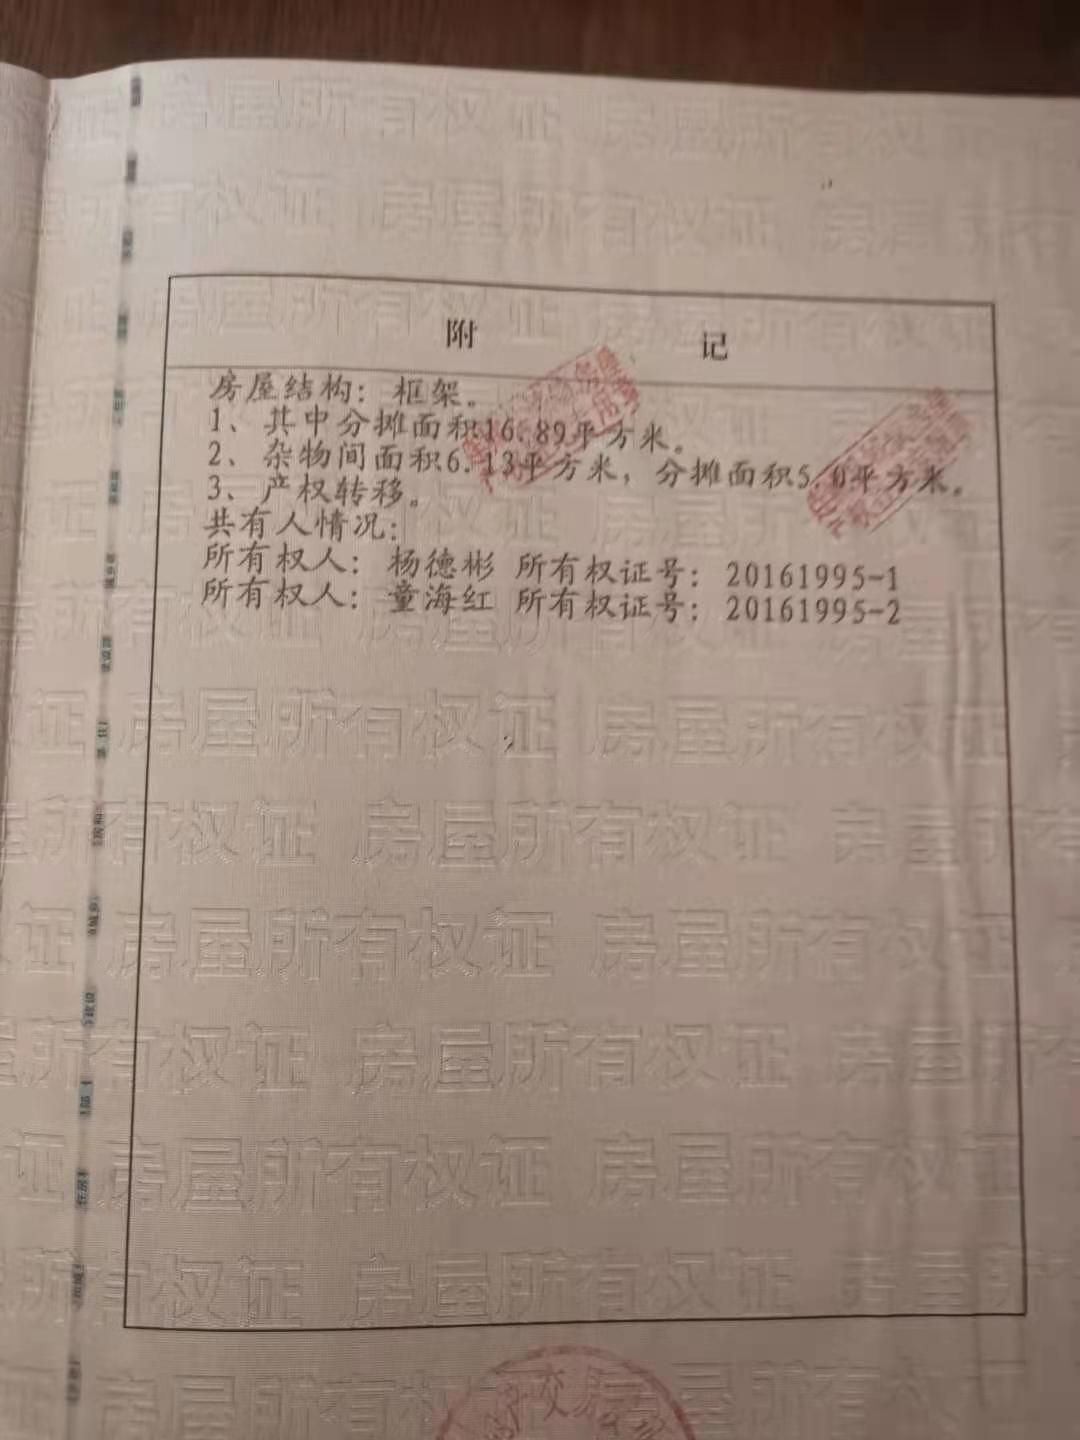 附 记
房屋结构：框架。
1、其中分摊面积16.89平方米。
2、杂物间面积6.13平方米，分摊面积5.0平方米。
3、产权转移。
共有人情况：
所有权人：杨德彬 所有权证号：20161995-1
所有权人：童海红 所有权证号：20161995-2
房屋所有权证
交易